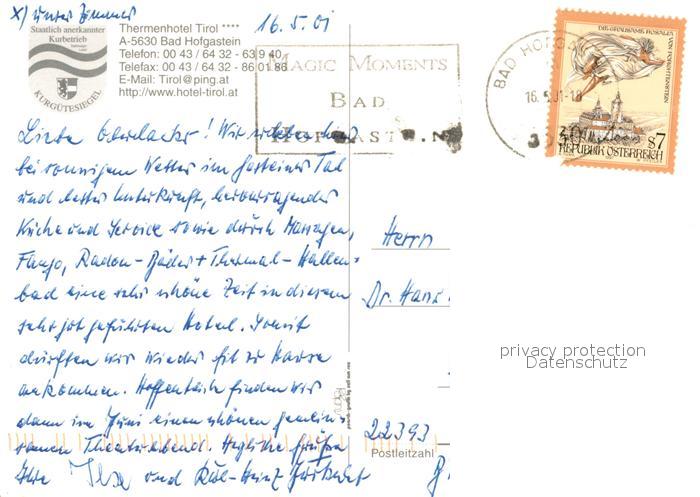 x) unser Zimmer
16.5.01
Staatlich anerkannter
Kurbetrieb
KURGÜTESIEGEL
Thermenhotel Tirol ****
A-5630 Bad Hofgastein
Telefon: 00 43 / 64 32 - 63 9 40
Telefax: 00 43 / 64 32 - 86 01 86
E-Mail: Tirol@ping.at
http://www.hotel-tirol.at
MAGIC MOMENTS
BAD
HOFGASTEIN
BAD HOFGA
16.5.01-18
DIE GRAUSAME ROSALIA VON FORCHTENSTEIN
S7
REPUBLIK ÖSTERREICH
Liebe ! Wir erleben hier
bei sonnigem Wetter im Gasteiner Tal
und bester Unterkunft, hervorragender
Küche und Service sowie durch Massagen,
Fango, Radon-Bäder + Thermal-Hallen-
bad eine sehr schöne Zeit in diesem
sehr gut geführten Hotel. Somit
dürften wir wieder fit zu Hause
ankommen. Hoffentlich finden wir
dann im Juni einen schönen gemein-
samen Theaterabend. Herzliche Grüße
Ihre Ilse und Karl-Heinz
Herrn
Dr. Hans
22393
Postleitzahl
privacy protection
Datenschutz